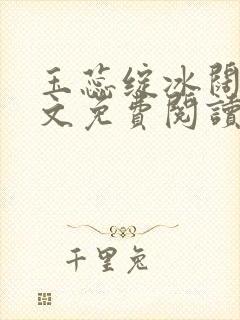 玉蕊綻冰闊
文免費閱讀
千里兔